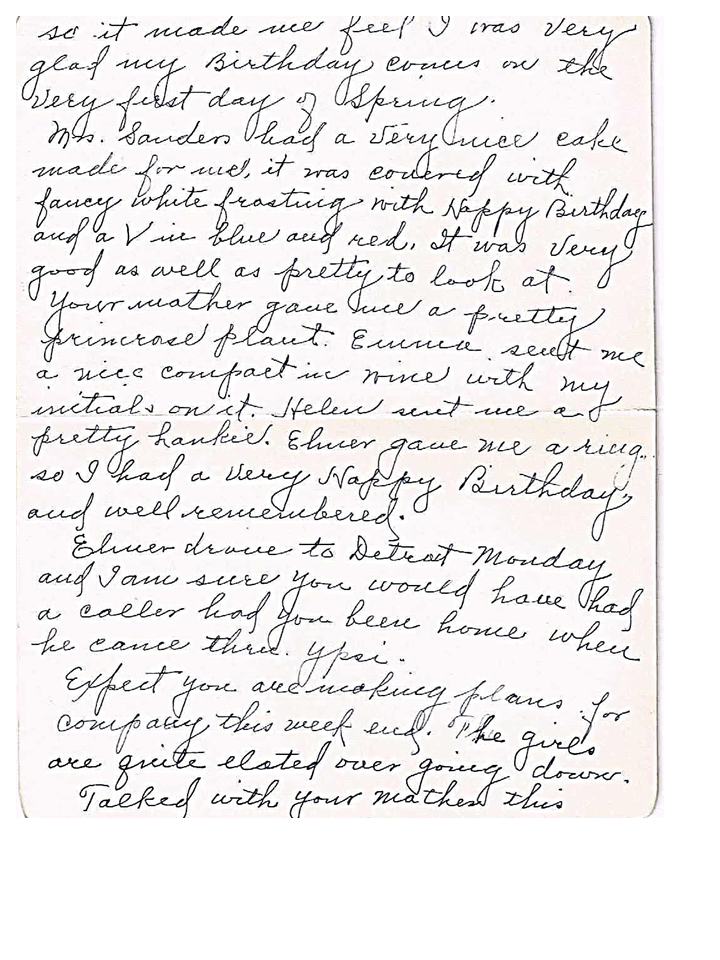 so it made me feel I was very
glad my Birthday comes on the
very first day of Spring.
Mrs. Sanders had a very nice cake
made for me, it was covered with
fancy white frosting with Happy Birthday
and a V in blue and red. It was very
good as well as pretty to look at.
Your mother gave me a pretty
primrose plant. Emma sent me
a nice compact in wine with my
initials on it. Helen sent me a
pretty hankie. Elmer gave me a ring.
so I had a very Happy Birthday,
and well remembered.
Elmer drove to Detroit Monday
and I am sure you would have had
a caller had you been home when
he came thru Ypsi.
Expect you are making plans for
company this week end. The girls
are quite elated over going down.
Talked with your mother this